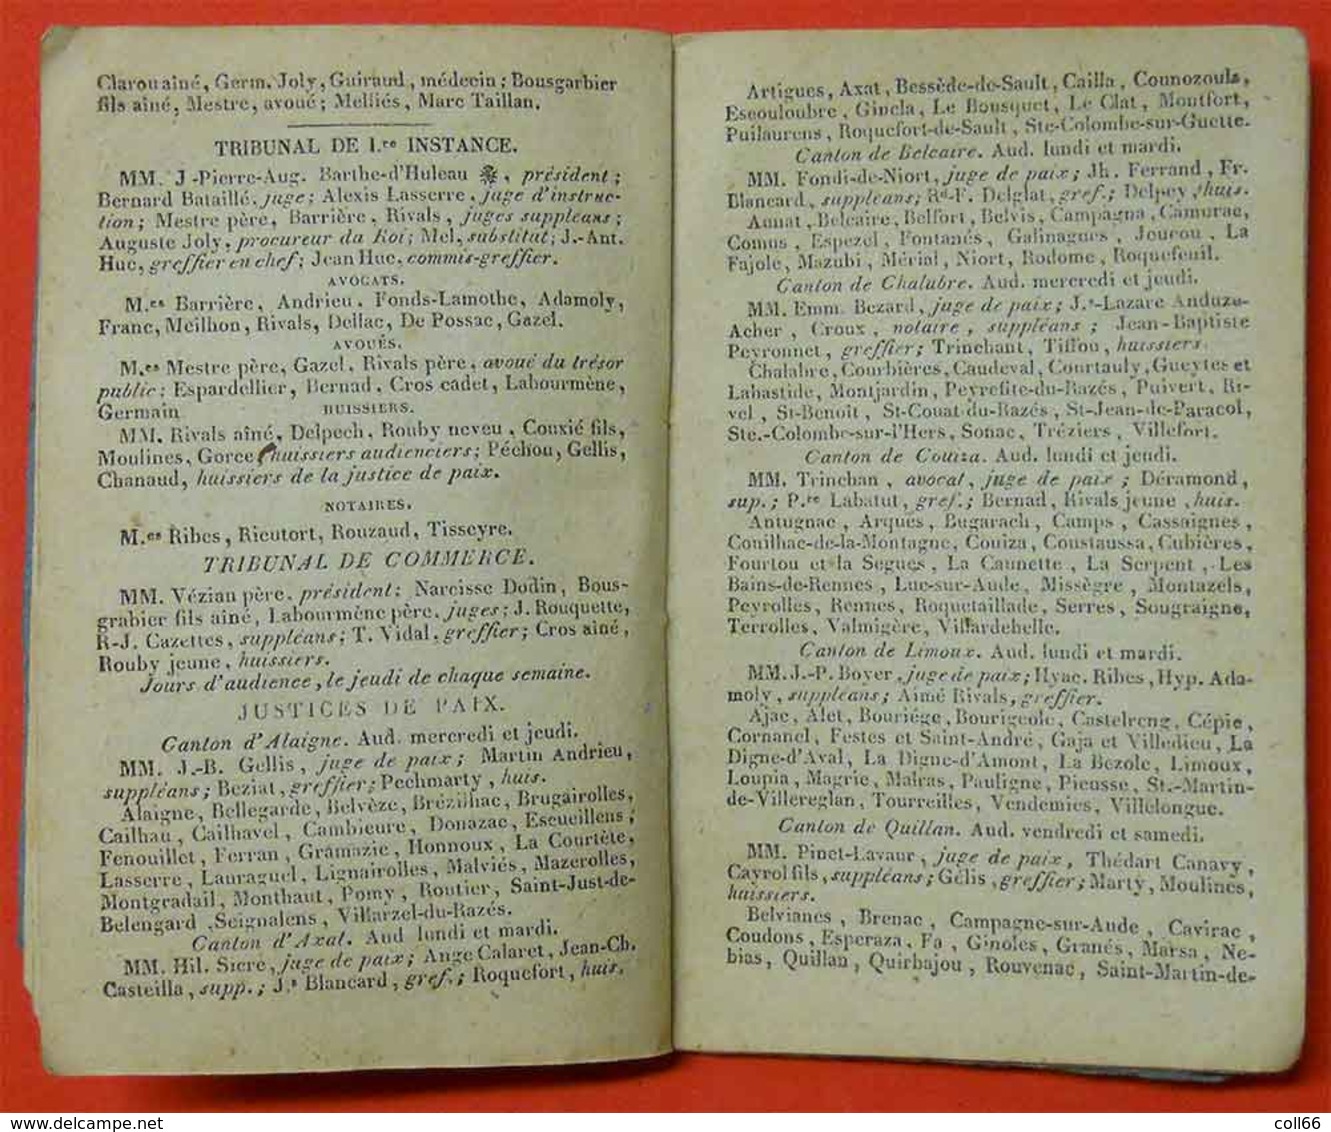 Clarou aîné, Germ. Joly, Guiraud, médecin; Bousgarbier
fils aîné, Mestre, avoué; Melliés, Marc Taillan.
TRIBUNAL DE I.re INSTANCE.
MM. J-Pierre-Aug. Barthe-d'Huleau , président;
Bernard Bataillé, juge; Alexis Lasserre, juge d'instruc-
tion; Mestre père, Barrière, Rivals, juges suppléans;
Auguste Joly, procureur du Roi; Mel, substitut; J.-Ant.
Huc, greffier en chef; Jean Huc, commis-greffier.
AVOCATS.
M.es Barrière, Andrieu, Fonds-Lamothe, Adamoly,
Franc, Meilhon, Rivals, Dellac, De Possac, Gazel.
AVOUÉS.
M.es Mestre père, Gazel, Rivals père, avoué du trésor
public; Espardellier, Bernad, Cros cadet, Labourmène,
Germain
HUISSIERS.
MM. Rivals aîné, Delpech, Rouby neveu, Couxié fils,
Moulines, Gorce, huissiers audienciers; Péchou, Gellis,
Chanaud, huissiers de la justice de paix.
NOTAIRES.
M.es Ribes, Rieutort, Rouzaud, Tisseyre.
TRIBUNAL DE COMMERCE.
MM. Vézian père, président: Narcisse Dodin, Bous-
grabier fils aîné, Labourmène père, juges; J. Rouquette,
R-J. Cazettes, suppléans; T. Vidal, greffier; Cros aîné,
Rouby jeune, huissiers.
Jours d'audience, le jeudi de chaque semaine.
JUSTICES DE PAIX.
Canton d'Alaigne. Aud. mercredi et jeudi.
MM. J.-B. Gellis, juge de paix; Martin Andrieu,
suppléans; Beziat, greffier; Pechmarty, huis.
Alaigne, Bellegarde, Belvèze, Brézilhac, Brugairolles,
Cailhau, Cailhavel, Cambieure, Donazac, Escueillens,
Fenouillet, Ferran, Gramazie, Honnoux, La Courtète,
Lasserre, Lauraguel, Lignairolles, Malviés, Mazerolles,
Montgradail, Monthaut, Pomy, Routier, Saint-Just-de-
Belengard, Seignalens, Villarzel-du-Razés.
Canton d'Axat. Aud lundi et mardi.
MM. Hil. Sicre, juge de paix; Ange Calaret, Jean-Ch.
Casteilla, supp.; J.s Blancard, gref.; Roquefort, huis.
Artigues, Axat, Bessède-de-Sault, Cailla, Counozouls,
Escouloubre, Gincla, Le Bousquet, Le Clat, Montfort,
Puilaurens, Roquefort-de-Sault, Ste-Colombe-sur-Guette.
Canton de Belcaire. Aud. lundi et mardi.
MM. Fondi-de-Niort, juge de paix; Jh. Ferrand, Fr.
Blancard, suppléans; Rd-F. Delglat, gref.; Delpey, huis.
Aunat, Belcaire, Belfort, Belvis, Campagna, Camurac,
Comus, Espezel, Fontanés, Galinagues, Joucou, La
Fajole, Mazubi, Mérial, Niort, Rodome, Roquefeuil.
Canton de Chalabre. Aud. mercredi et jeudi.
MM. Emm. Bezard, juge de paix; J.s-Lazare Anduze-
Acher, Croux, notaire, suppléans; Jean-Baptiste
Peyronnet, greffier; Trinchant, Tiffou, huissiers.
Chalabre, Courbières, Caudeval, Courtauly, Gueytes et
Labastide, Montjardin, Peyrefite-du-Razés, Puivert, Ri-
vel, St-Benoît, St-Couat-du-Razés, St-Jean-de-Paracol,
Ste.-Colombe-sur-l'Hers, Sonac, Tréziers, Villefort.
Canton de Couiza. Aud. lundi et jeudi.
MM. Trinchan, avocat, juge de paix; Déramond,
sup.; P.re Labatut, gref.; Bernad, Rivals jeune, huis.
Antugnac, Arques, Bugarach, Camps, Cassaignes,
Conilhac-de-la-Montagne, Couiza, Coustaussa, Cubières,
Fourtou et la Segues, La Caunette, La Serpent, Les
Bains-de-Rennes, Luc-sur-Aude, Missègre, Montazels,
Peyrolles, Rennes, Roquetaillade, Serres, Sougraigne,
Terrolles, Valmigère, Villardebelle.
Canton de Limoux. Aud. lundi et mardi.
MM. J.-P. Boyer, juge de paix; Hyac. Ribes, Hyp. Ada-
moly, suppléans; Aimé Rivals, greffier.
Ajac, Alet, Bouriége, Bourigeole, Castelreng, Cépie,
Cornanel, Festes et Saint-André, Gaja et Villedieu, La
Digne-d'Aval, La Digne-d'Amont, La Bezole, Limoux,
Loupia, Magrie, Malras, Pauligne, Pieusse, St.-Martin-
de-Villereglan, Tourreilles, Vendemies, Villelongue.
Canton de Quillan. Aud. vendredi et samedi.
MM. Pinet-Lavaur, juge de paix, Thédart Canavy,
Cayrol fils, suppléans; Gélis, greffier; Marty, Moulines,
huissiers.
Belvianes, Brenac, Campagne-sur-Aude, Cavirac,
Coudons, Esperaza, Fa, Ginoles, Granés, Marsa, Ne-
bias, Quillan, Quirbajou, Rouvenac, Saint-Martin-de-
© delcampe.net
coll66